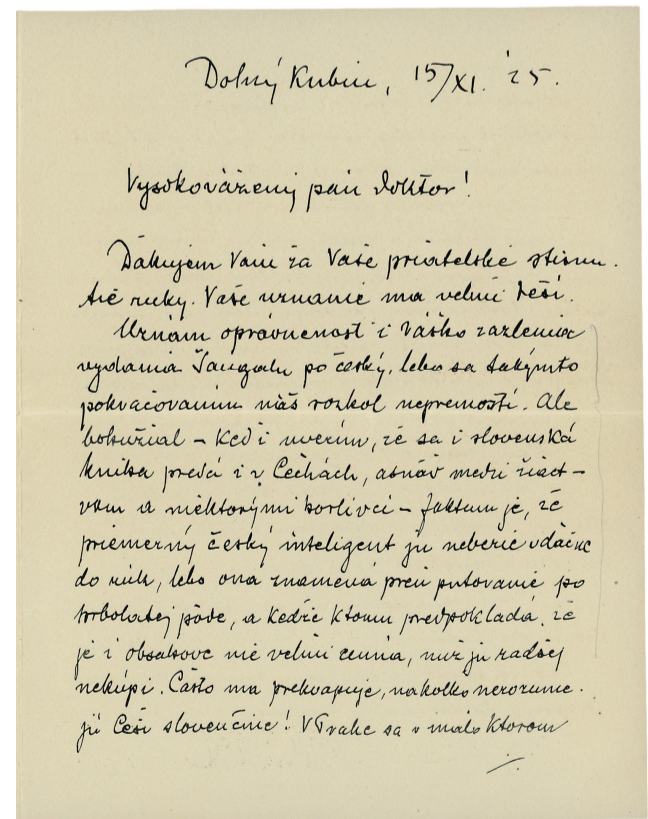 Dolný Kubin, 15/XI. '25.
Vysokovážený pán doktor!
Ďakujem Vám za Vaše priatelské stisnu.
tie ruky. Vaše uznanie ma velmi teší.
Uznám oprávnenosť i Vášho zazlenia
vydania Šangalu po česky, lebo sa takýmto
pokračovaním náš rozkol nepremostí. Ale
bohužial – keď i uverím, že sa i slovenská
kniha predá i v Čechách, asnáď medzi žiact-
vom a niektorými horlivci – faktum je, že
priemerný český inteligent ju neberie vďačne
do rúk, lebo ona znamená preň putovanie po
hrbolatej pôde, a kedže ktomu predpokladá, že
je i obsahove nie velmi cenná, nuž ju radšej
nekúpi. Často ma prekvapuje, nakolko nerozume.
jú Česi slovenčine! V Prahe sa v málo ktorom